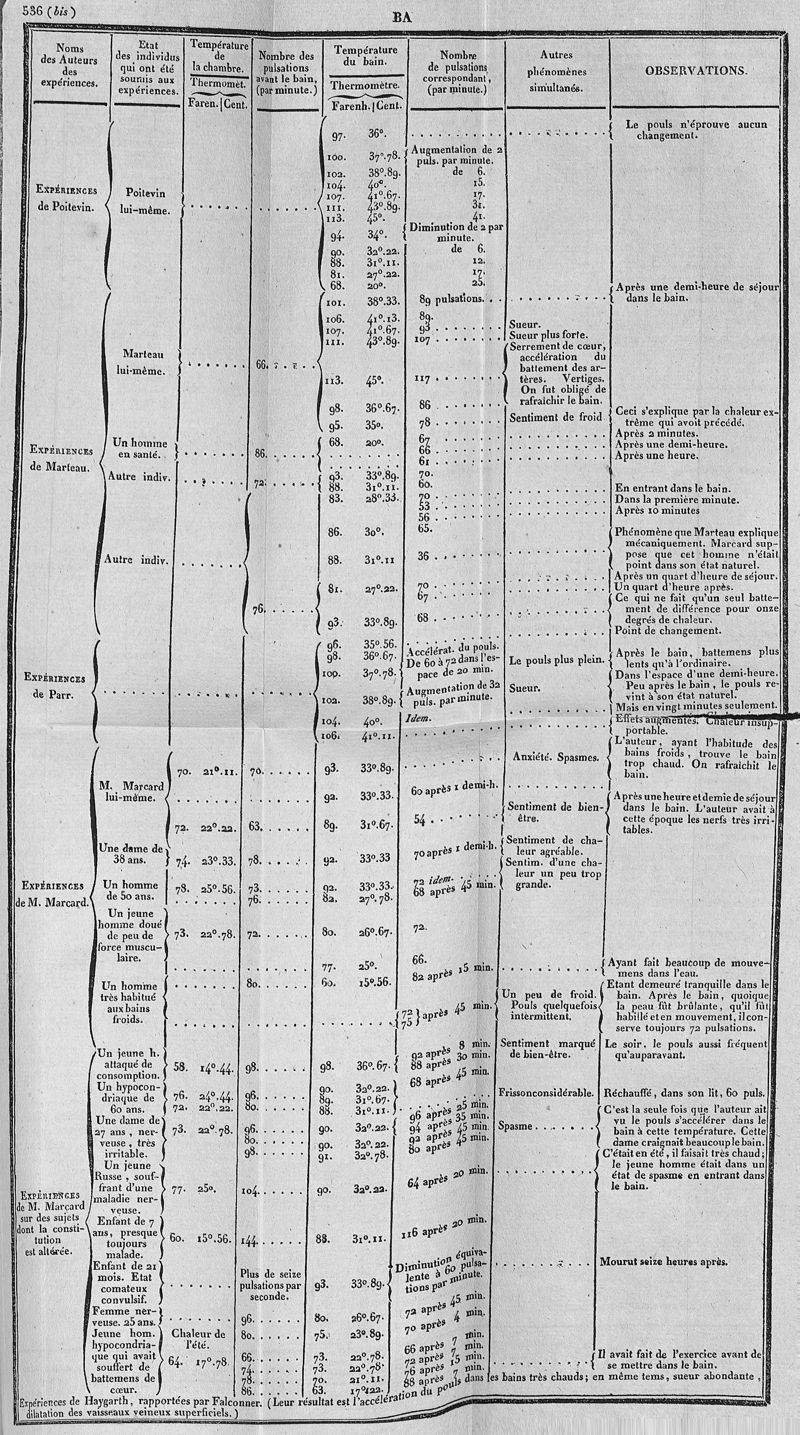 536 (bis)
BA
Noms
des Auteurs
des
expériences.
Etat
des individus
qui ont été
soumis aux
expériences.
Température
de
la chambre.
Thermomèt.
Faren. | Cent.
Nombre des
pulsations
avant le bain,
(par minute.)
Température
du bain.
Thermomètre.
Farenh. | Cent.
Nombre
de pulsations
correspondant,
(par minute.)
Autres
phénomènes
simultanés.
OBSERVATIONS.
EXPÉRIENCES
de Poitevin.
Poitevin
lui-même.
97. 36°. Le pouls n'éprouve aucun
changement.
100. 37°.78. Augmentation de 2
puls. par minute.
102. 38°.89. de 6.
104. 40°. 15.
107. 41°.67. 17.
111. 43°.89. 31.
113. 45°. 41.
94. 34°. Diminution de 2 par
minute.
90. 32°.22. de 6.
88. 31°.11. 12.
81. 27°.22. 17.
68. 20°. 25.
EXPÉRIENCES
de Marteau.
Marteau
lui-même.
66.
101. 38°.33. 89 pulsations. Après une demi-heure de séjour
dans le bain.
106. 41°.13. 89.
107. 41°.67. 93 Sueur.
111. 43°.89. 107 Sueur plus forte.
113. 45°. 117 Serrement de cœur,
accélération du
battement des ar-
tères. Vertiges.
On fut obligé de
rafraîchir le bain.
98. 36°.67. 86
95. 35°. 78 Sentiment de froid Ceci s'explique par la chaleur ex-
trême qui avoit précédé.
Un homme
en santé.
86.
68. 20°. 67 Après 2 minutes.
66 Après une demi-heure.
61 Après une heure.
Autre indiv.
72.
93. 33°.89. 70.
88. 31°.11. 60.
Autre indiv.
76.
83. 28°.33. 70 En entrant dans le bain.
53 Dans la première minute.
56 Après 10 minutes
86. 30°. 65.
88. 31°.11 36 Phénomène que Marteau explique
mécaniquement. Marcard sup-
pose que cet homme n'était
point dans son état naturel.
81. 27°.22. 70 Après un quart d'heure de séjour.
67 Un quart d'heure après.
93. 33°.89. 68 Ce qui ne fait qu'un seul batte-
ment de différence pour onze
degrés de chaleur.
Point de changement.
EXPÉRIENCES
de Parr.
96. 35°.56.
98. 36°.67. Accélérat. du pouls.
100. 37°.78. De 60 à 72 dans l'es-
pace de 20 min.
Le pouls plus plein.
Après le bain, battemens plus
lents qu'à l'ordinaire.
102. 38°.89. Augmentation de 32
puls. par minute.
Sueur.
Dans l'espace d'une demi-heure.
Peu après le bain, le pouls re-
vint à son état naturel.
Mais en vingt minutes seulement.
104. 40°. Idem.
106. 41°.11. Effets augmentés. Chaleur insup-
portable.
EXPÉRIENCES
de M. Marcard.
M. Marcard
lui-même.
70. 21°.11. 70. 93. 33°.89. Anxiété. Spasmes. L'auteur, ayant l'habitude des
bains froids, trouve le bain
trop chaud. On rafraîchit le
bain.
92. 33°.33. 60 après 1 demi-h.
72. 22°.22. 63. 89. 31°.67. 54 Sentiment de bien-
être.
Après une heure et demie de séjour
dans le bain. L'auteur avait à
cette époque les nerfs très irri-
tables.
Une dame de
38 ans.
74. 23°.33. 78. 92. 33°.33 70 après 1 demi-h. Sentiment de cha-
leur agréable.
Un homme
de 50 ans.
78. 25°.56. 73. 92. 33°.33. 72 idem. Sentim. d'une cha-
leur un peu trop
grande.
76. 82. 27°.78. 68 après 45 min.
Un jeune
homme doué
de peu de
force muscu-
laire.
73. 22°.78. 72. 80. 26°.67. 72.
77. 25°. 66.
Un homme
très habitué
aux bains
froids.
80. 60. 15°.56. 82 après 15 min. Ayant fait beaucoup de mouve-
mens dans l'eau.
72
75 après 45 min. Un peu de froid.
Pouls quelquefois
intermittent.
Etant demeuré tranquille dans le
bain. Après le bain, quoique
la peau fût brûlante, qu'il fût
habillé et en mouvement, il con-
serve toujours 72 pulsations.
EXPÉRIENCES
de M. Marcard
sur des sujets
dont la consti-
tution
est altérée.
Un jeune h.
attaqué de
consomption.
58. 14°.44. 98. 98. 36°.67. 92 après 8 min.
88 après 30 min.
68 après 45
Sentiment marqué
de bien-être.
Le soir, le pouls aussi fréquent
qu'auparavant.
Un hypocon-
driaque de
60 ans.
76. 24°.44. 96. 90. 32°.22.
89. 31°.67
72. 22°.22. 80. 88. 31°.11.
Frisson considérable. Réchauffé, dans son lit, 60 puls.
Une dame de
27 ans, ner-
veuse, très
irritable.
73. 22°.78. 96. 90. 32°.22.
80. 90. 32°.22.
98. 91. 32°.78.
96 après 25 min.
94 après 35 min.
92 après 45 min.
80 après 45 min.
Spasme
C'est la seule fois que l'auteur ait
vu le pouls s'accélérer dans le
bain à cette température. Cette
dame craignait beaucoup le bain.
Un jeune
Russe, souf-
frant d'une
maladie ner-
veuse.
77. 25°. 104. 90. 32°.22. 64 après 20 min. C'était en été, il faisait très chaud;
le jeune homme était dans un
état de spasme en entrant dans
le bain.
Enfant de 7
ans, presque
toujours
malade.
60. 15°.56. 144. 88. 31°.11. 116 après 20 min.
Enfant de 21
mois. Etat
comateux
convulsif.
Plus de seize
pulsations par
seconde.
93. 33°.89. Diminution équiva-
lente à 60 pulsa-
tions par minute.
Mourut seize heures après.
Femme ner-
veuse. 25 ans.
96. 80. 26°.67. 72 après 45 min.
Jeune hom.
hypocondria-
que qui avait
souffert de
battemens de
cœur.
Chaleur de
l'été.
80. 75. 23°.89. 70 après 4 min.
64. 17°.78. 66. 73. 22°.78. 66 après 7 min.
74. 73. 22°.78. 72 après 7 min.
78. 70. 21°.11. 76 après 15 min.
86. 63. 17°.22. 88 après 7 min.
Il avait fait de l'exercice avant de
se mettre dans le bain.
Expériences de Haygarth, rapportées par Falconner. (Leur résultat est l'accélération du pouls dans les bains très chauds; en même tems, sueur abondante,
dilatation des vaisseaux veineux superficiels.)